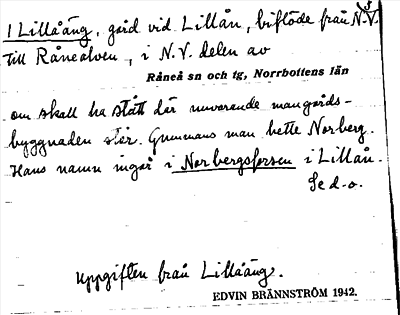 1 Lillåäng, gård vid Lillån, biflöde från N.V.
till Råneälven, i N.V. delen av
Råneå sn och tg, Norrbottens län
om skall ha stått där nuvarande mangårds-
byggnaden står. Gummans man hette Norberg.
Hans namn ingår i Norbergsforsen i Lillån.
Se d.o.
Uppgiften från Lillåäng.
EDVIN BRÄNNSTRÖM 1942.